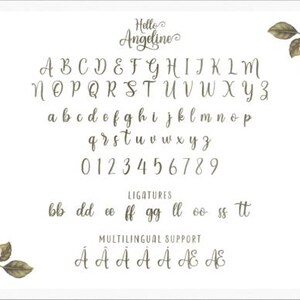 Hello
Angeline
A B C D E F G H I J K L M
N O P Q R S T U V W X Y Z
a b c d e f g h i j k l m n o p
q r s t u v w x y z
0 1 2 3 4 5 6 7 8 9
LIGATURES
bb dd ee ff gg ll oo ss tt
MULTILINGUAL SUPPORT